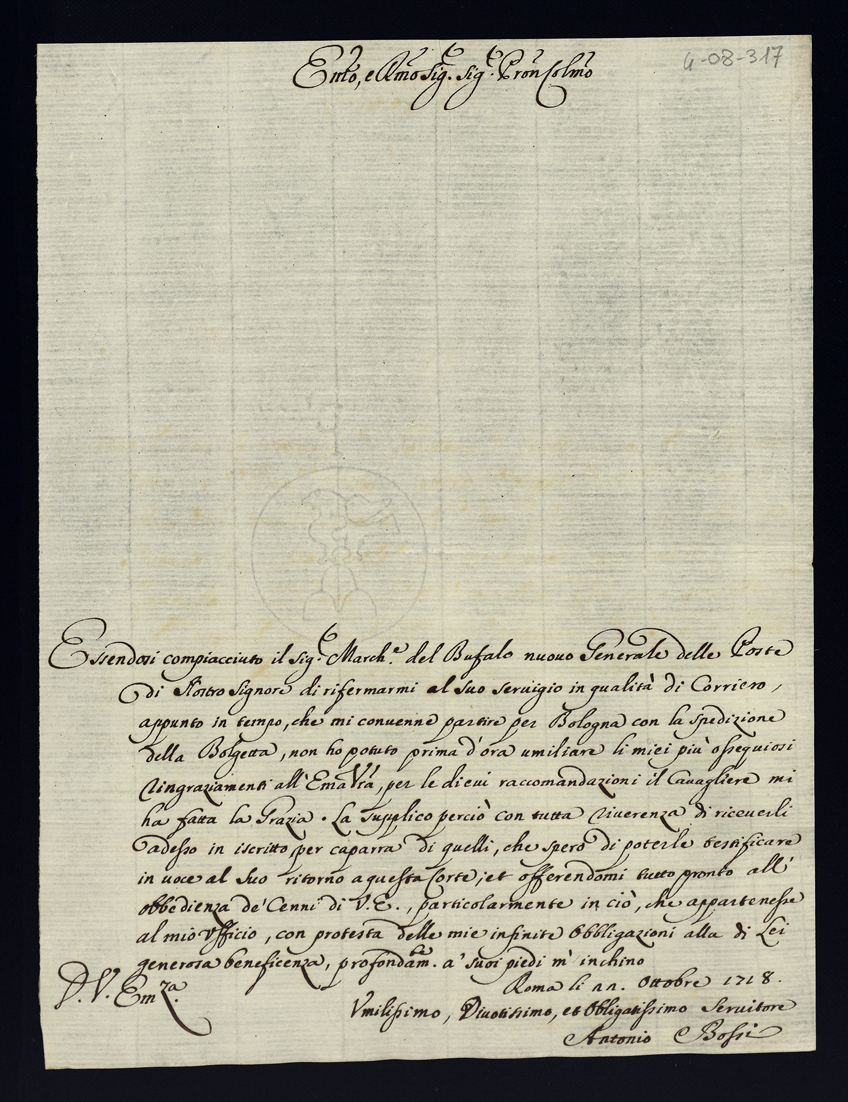 Emo, e Rmo Sig.r Sig.r Pron Colmo
4-08-317
Essendosi compiacciuto il Sig.r March.e del Bufalo nuovo Generale delle Poste
di Nostro Signore di rifermarmi al suo servigio in qualità di Corriero,
appunto in tempo, che mi convenne partire per Bologna con la spedizione
della Bolgetta, non ho potuto prima d'ora umiliare li miei più ossequiosi
ringraziamenti all'Ema Vra, per le di cui raccomandazioni il Cavagliere mi
ha fatta la Grazia. La supplico perciò con tutta riverenza di riceverli
adesso in iscritto per caparra di quelli, che spero di poterle testificare
in voce al suo ritorno a questa Corte, et offerendomi tutto pronto all'
obbedienza de' Cenni di V.E., particolarmente in ciò, che appartenesse
al mio Vfficio, con protesta delle mie infinite Obbligazioni alla di Lei
generosa beneficenza, profondam.te a' suoi piedi m'inchino
D.V. Em.za
Roma li 22. Ottobre 1718.
Vmilissimo, Divotissimo, et Obbligatissimo Servitore
Antonio Bossi